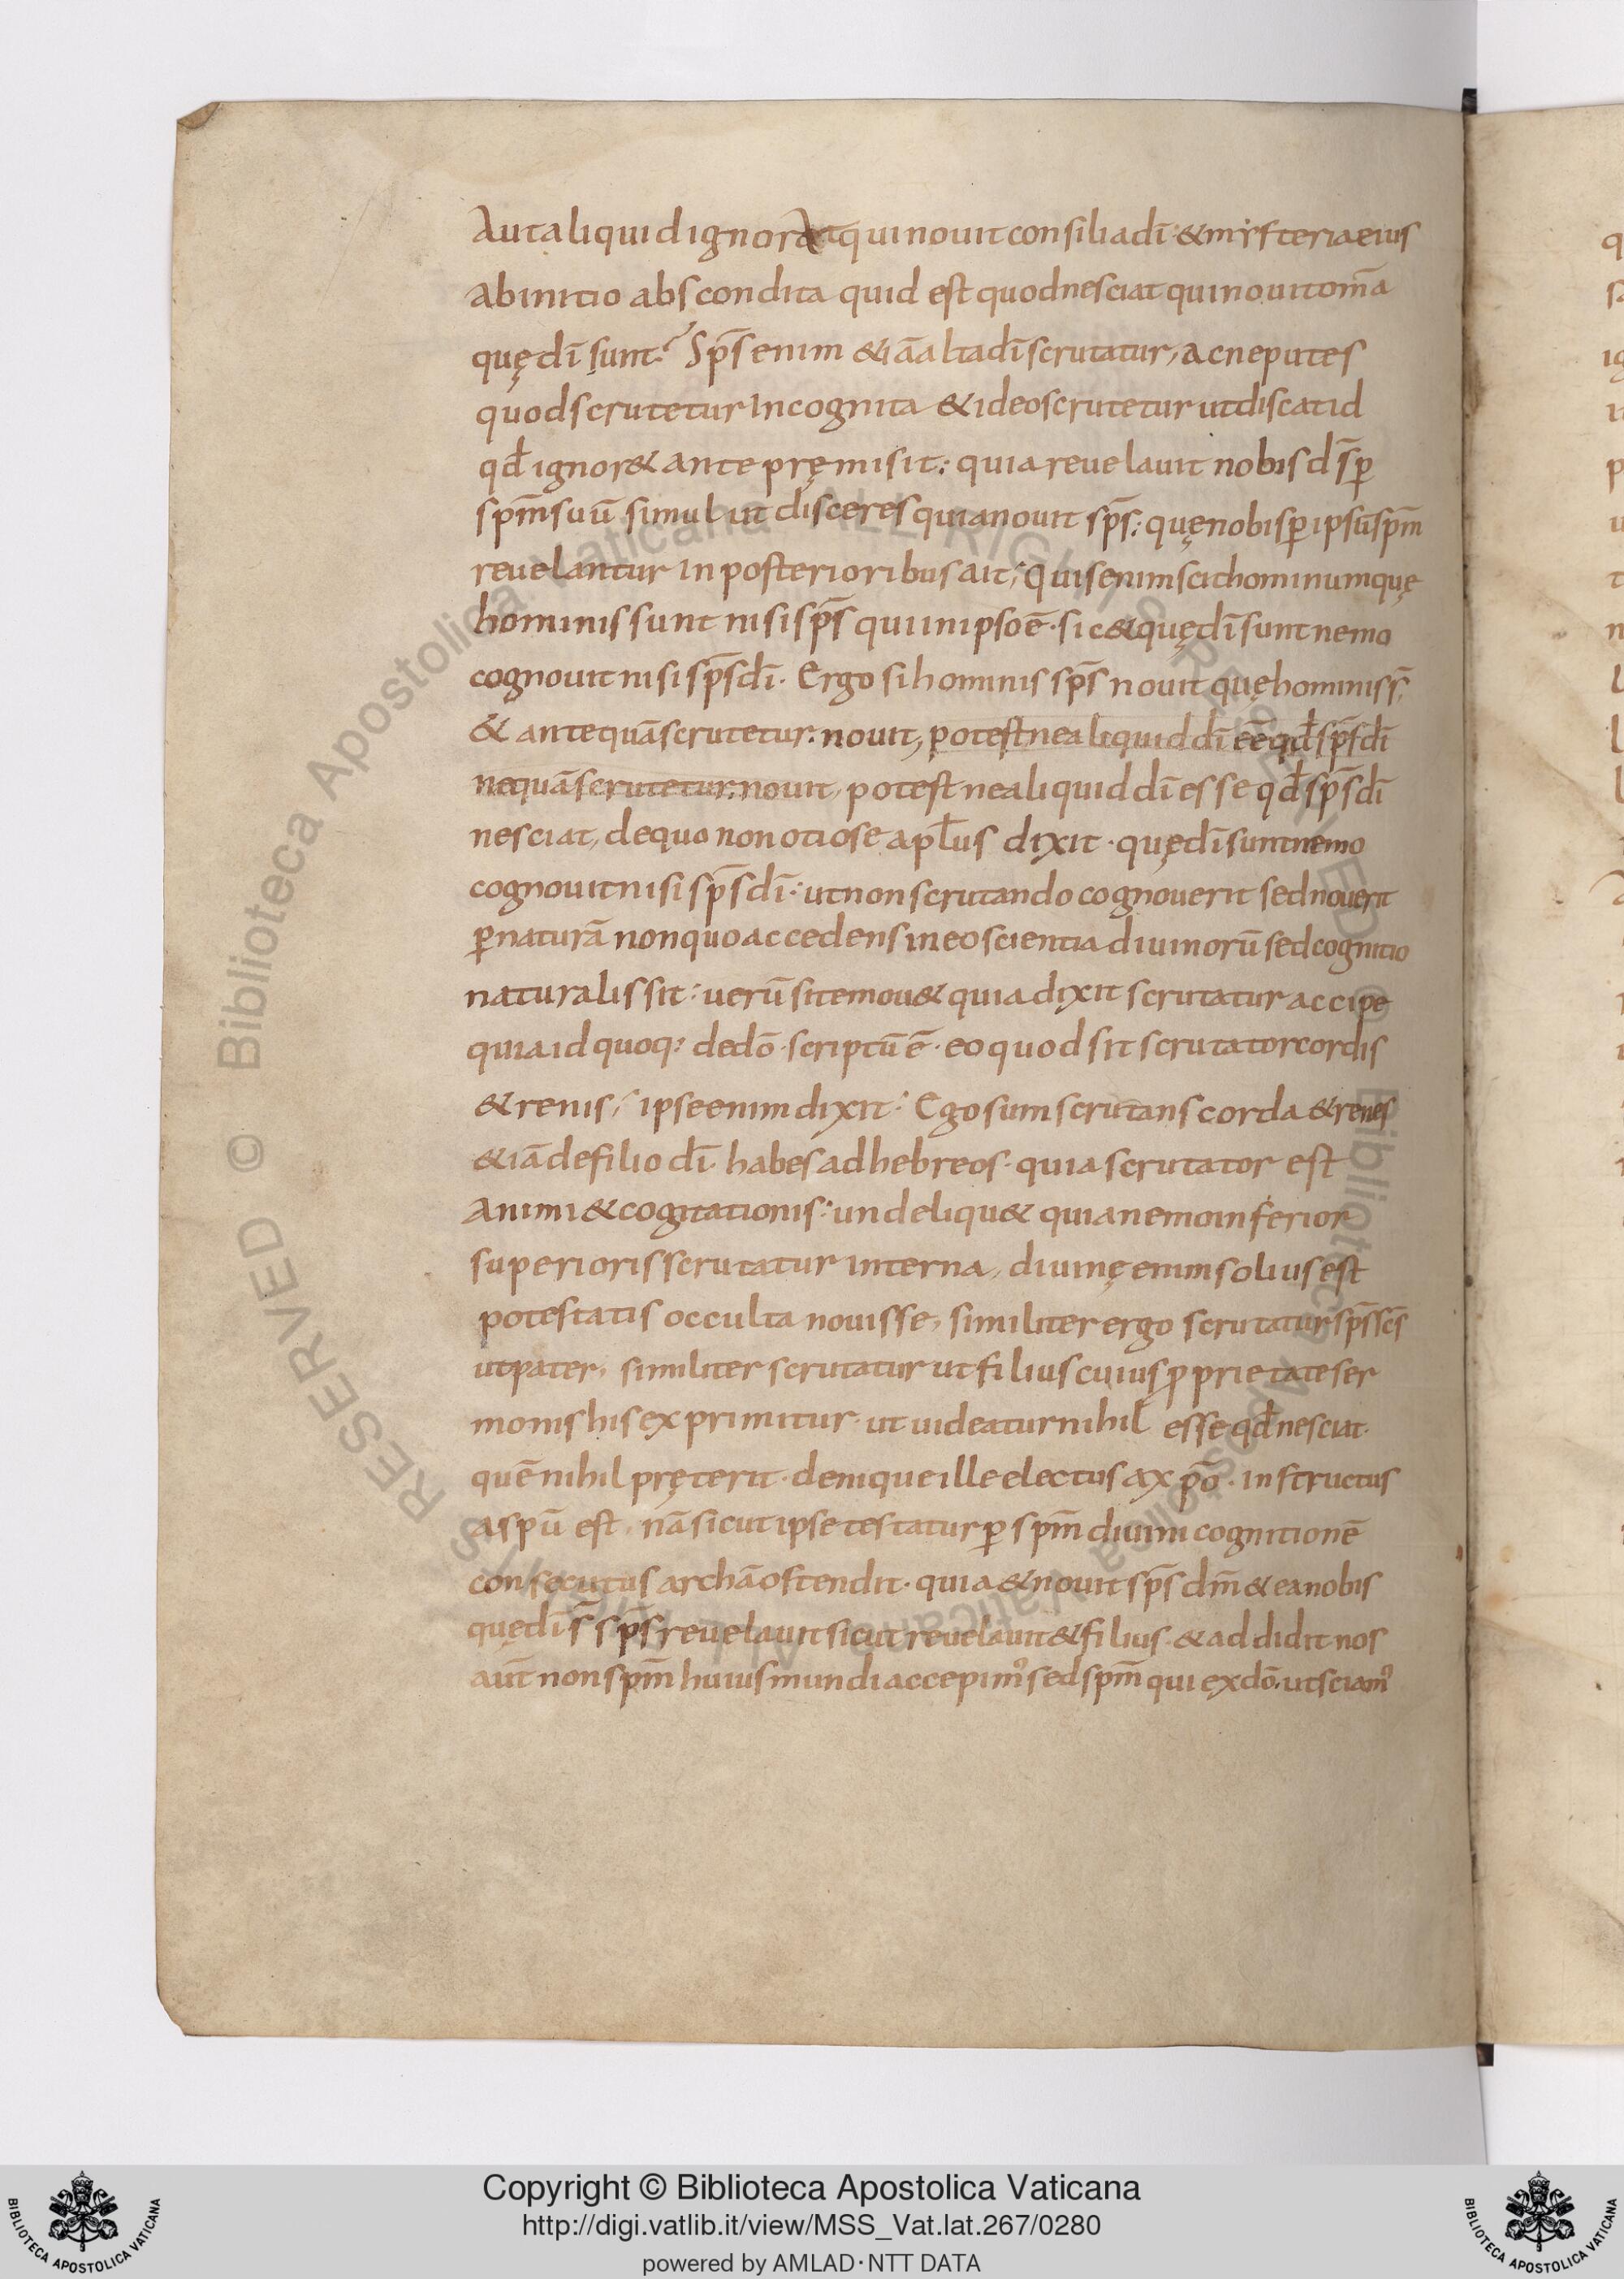 Aut aliquid ignorat qui nouit consilia dī· & mẏsteria eius
ab initio abscondita quid est quod nesciat qui nouit om̄a
quę dī sunt? Sp̄s enim &iā alta dī scrutatur, ac ne putes
quod scrutetur incognita & ideo scrutetur ut discat id
qđ ignor& ante pręmisit: quia reuelauit nobis d̄s ꝑ
sp̄m suū simul ut disceres quia nouit sp̄s: quę nobis ꝑ ipsū sp̄m
reuelantur in posterioribus ait; Quis enim scit hominum quę
hominis sunt nisi sp̄s qui in ipso ē· sic & quę dī sunt nemo
cognouit nisi sp̄s dī· Ergo si hominis sp̄s nouit quę hominis s̄·
& antequā scrutetur: nouit, potestne aliquid dī eē qđ sp̄s dī
nequā scrutetur: nouit, potestne aliquid dī esse qđ sp̄s dī
nesciat, de quo non otiose apłus dixit· quę dī sunt nemo
cognouit nisi sp̄s dī: ut non scrutando cognouerit sed nouerit
ꝑ naturā non quo accedens in eo scientia diuinorū sed cognitio
naturalis sit: uerū si te mou& quia dixit scrutatur accipe
quia id quoq; de dō· scriptū ē· eo quod sit scrutator cordis
& renis, ipse enim dixit: Ego sum scrutans corda & renes
&iā de filio dī· habes ad hebreos· quia scrutator est
animi & cogitationis: unde liqu& quia nemo inferior
superioris scrutatur interna, diuinę enim solius est
potestatis occulta nouisse, similiter ergo scrutatur sp̄s sc̄s
ut pater, similiter scrutatur ut filius cuius ꝓprietate ser
monis his exprimitur· ut uideatur nihil esse qđ nesciat·
quē nihil pręterit· denique ille electus a xp̄o· instructus
a spū est, nā sicut ipse testatur ꝑ sp̄m diuini cognitionē
consecutus archā ostendit· quia & nouit sp̄s dm̄ & ea nobis
quę dī s̄ sp̄s reuelauit sicut reuelauit & filius· & addidit nos
aūt non sp̄m huius mundi accepim᾿ sed sp̄m qui ex dō, ut sciam᾿
Copyright © Biblioteca Apostolica Vaticana
http://digi.vatlib.it/view/MSS_Vat.lat.267/0280
powered by AMLAD·NTT DATA
BIBLIOTECA APOSTOLICA VATICANA
BIBLIOTECA APOSTOLICA VATICANA